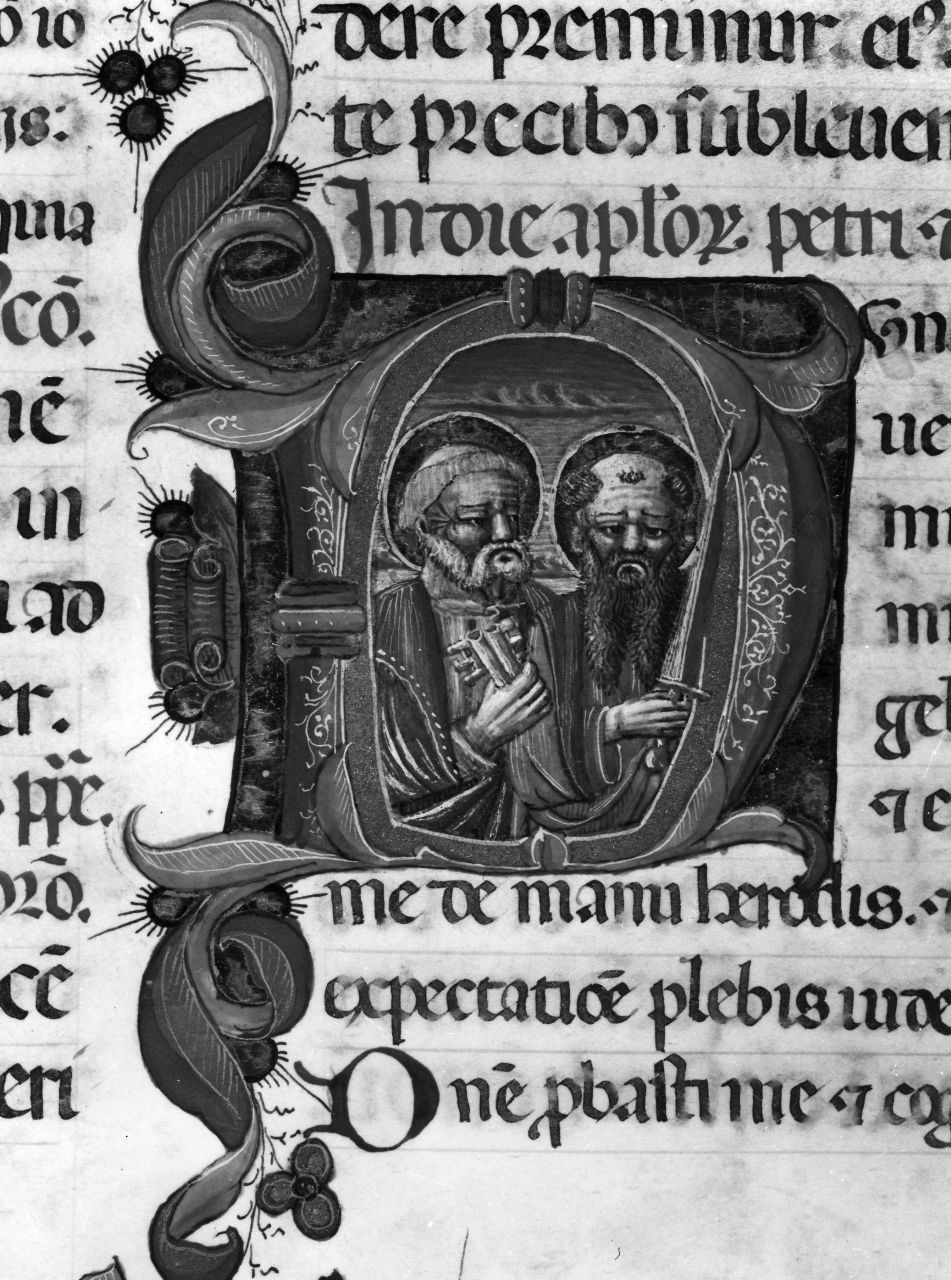 o io
is:
gina
cō.
nē
in
ad
er.
ppr̄e.
orō.
cē
eri
dere premimur. ei⁹
te precibꝫ subleuen
In die apl'oꝝ petri ⁊
N
un
ue
mi
mi
ge
⁊ e
me de manu herodis. ⁊
expectatiōe plebis iude
Onē ꝓbasti me ⁊ cog